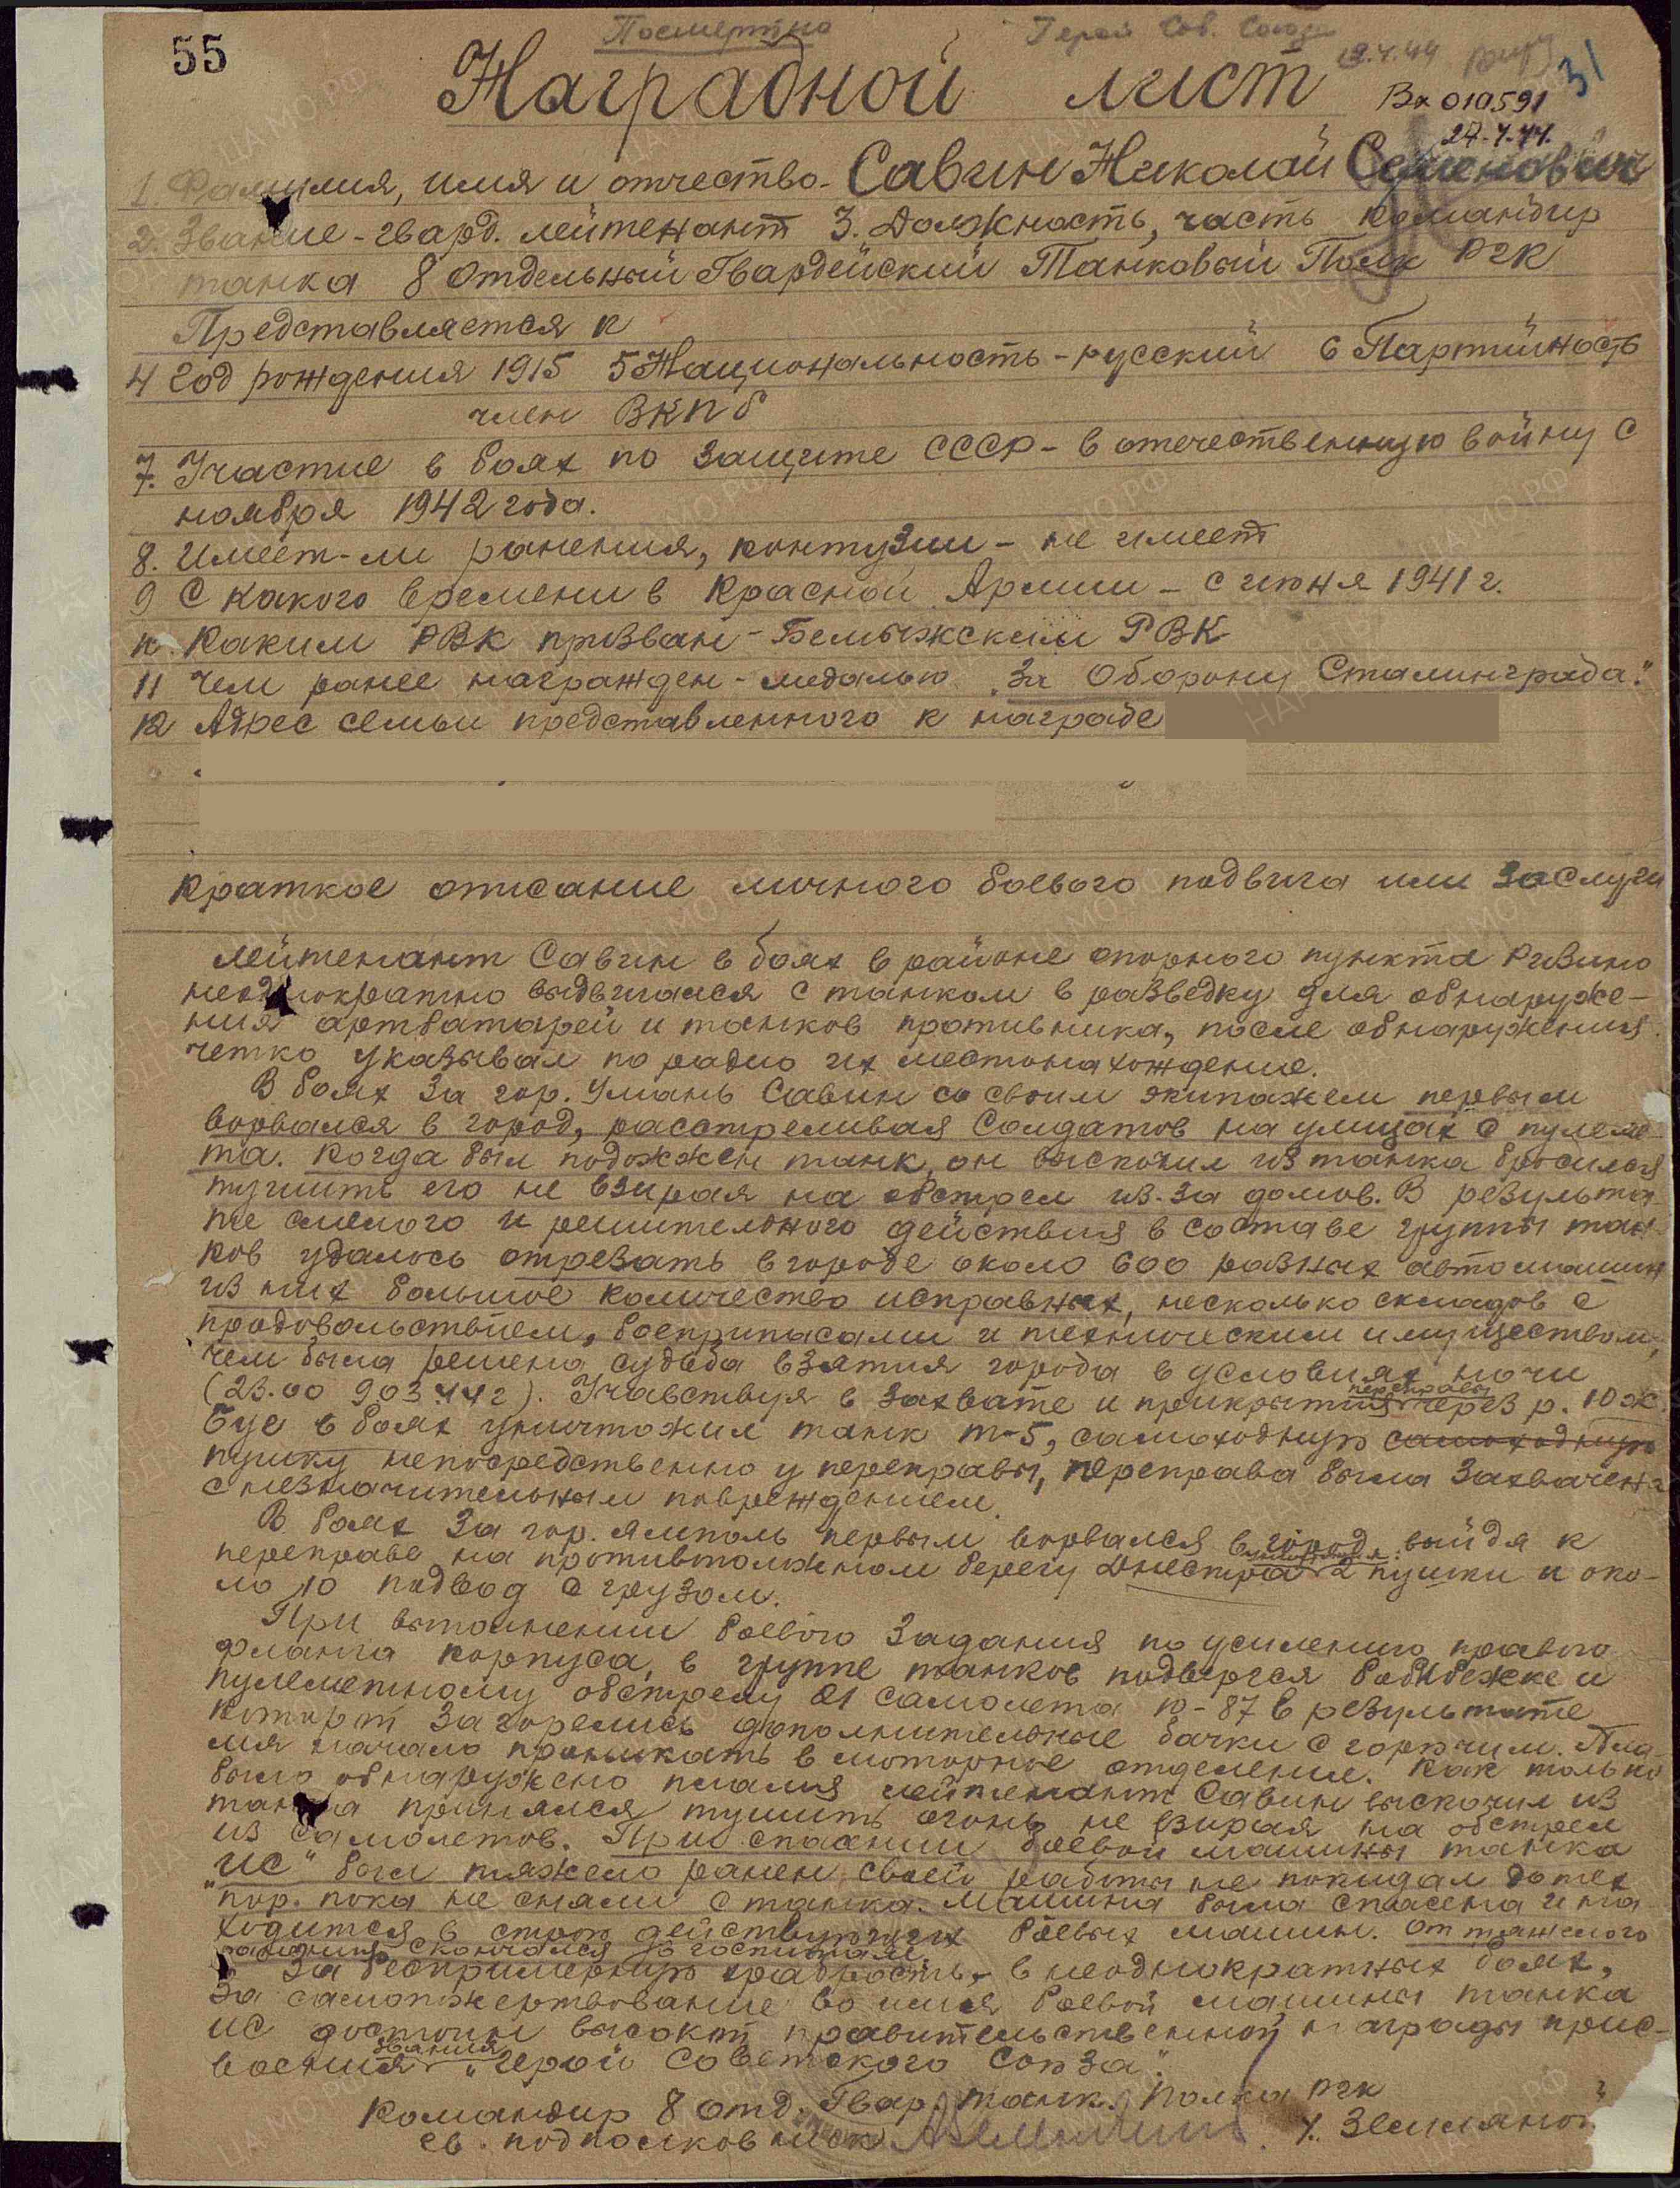 55
Посмертно
Герой Сов. Союза
Наградной лист
Вх 010591
31
1. Фамилия, имя и отчество - Савин Николай Семенович
2. Звание - гвард. лейтенант 3. Должность, часть командир
танка 8 Отдельный Гвардейский Танковый Полк РГК
Представляется к
4 год рождения 1915 5 Национальность - русский 6 Партийность
член ВКПб
7. Участие в боях по защите СССР - в отечественную войну с
ноября 1942 года.
8. Имеет-ли ранения, контузии - не имеет
9 С какого времени в Красной Армии - с июня 1941 г.
Каким РВК призван - РВК
11 Чем ранее награжден - медалью „За Оборону Сталинграда."
12 Адрес семьи представленного к награде
Краткое описание личного боевого подвига или заслуги
Лейтенант Савин в боях в районе опорного пункта Ризино
неоднократно выдвигался с танком в разведку для обнаруже-
ния артбатарей и танков противника, после обнаружения
четко указывал по радио их местонахождение.
В боях за гор. Умань Савин со своим экипажем первым
ворвался в город, расстреливая солдатов на улицах с пулеме-
та. Когда был подожжен танк, он выскочил из танка бросился
тушить его не взирая на обстрел из-за домов. В результа-
те смелого и решительного действия в составе группы тан-
ков удалось отрезать в городе около 600 разных автомашин
из них большое количество исправных, несколько складов с
продовольствием, боеприпасами и техническим имуществом,
чем была решена судьба взятия города в условиях ночи
(23.00 9.03.44г). Учавствуя в захвате и прикрытия переправы через р. Юж.
Буг в боях уничтожил танк т-5, самоходную самоходную
пушку непосредственно у переправы, переправа была захвачена
с незначительным повреждением.
В боях за гор. Ямполь первым ворвался в город, выйдя к
переправе на противоположном берегу Днестра 2 пушки и око-
ло 10 подвод с грузом.
При выполнении боевого задания по усилению правого
фланга корпуса, в группе танков подвергся бомбежке и
пулеметному обстрелу 21 самолета Ю-87 в результате
которой загорелись дополнительные бачки с горючим. Пла-
мя начало проникать в моторное отделение. Как только
было обнаружено пламя лейтенант Савин выскочил из
танка принялся тушить огонь не взирая на обстрел
из самолетов. При спасении боевой машины танка
„ИС" был тяжело ранен, своей работы не покидал до тех
пор. пока не сняли с танка. Машина была спасена и на-
ходится в строю действующих боевых машин. От тяжелого
ранения скончался в госпитале.
За беспримерную храбрость, в неоднократных боях,
за самопожертвование во имя боевой машины танка
ИС достоин высокой правительственной награды прис-
воения звания „Герой Советского Союза".
Командир 8 отд. Гвар. танк. Полка РГК
гв. подполковник Земляной